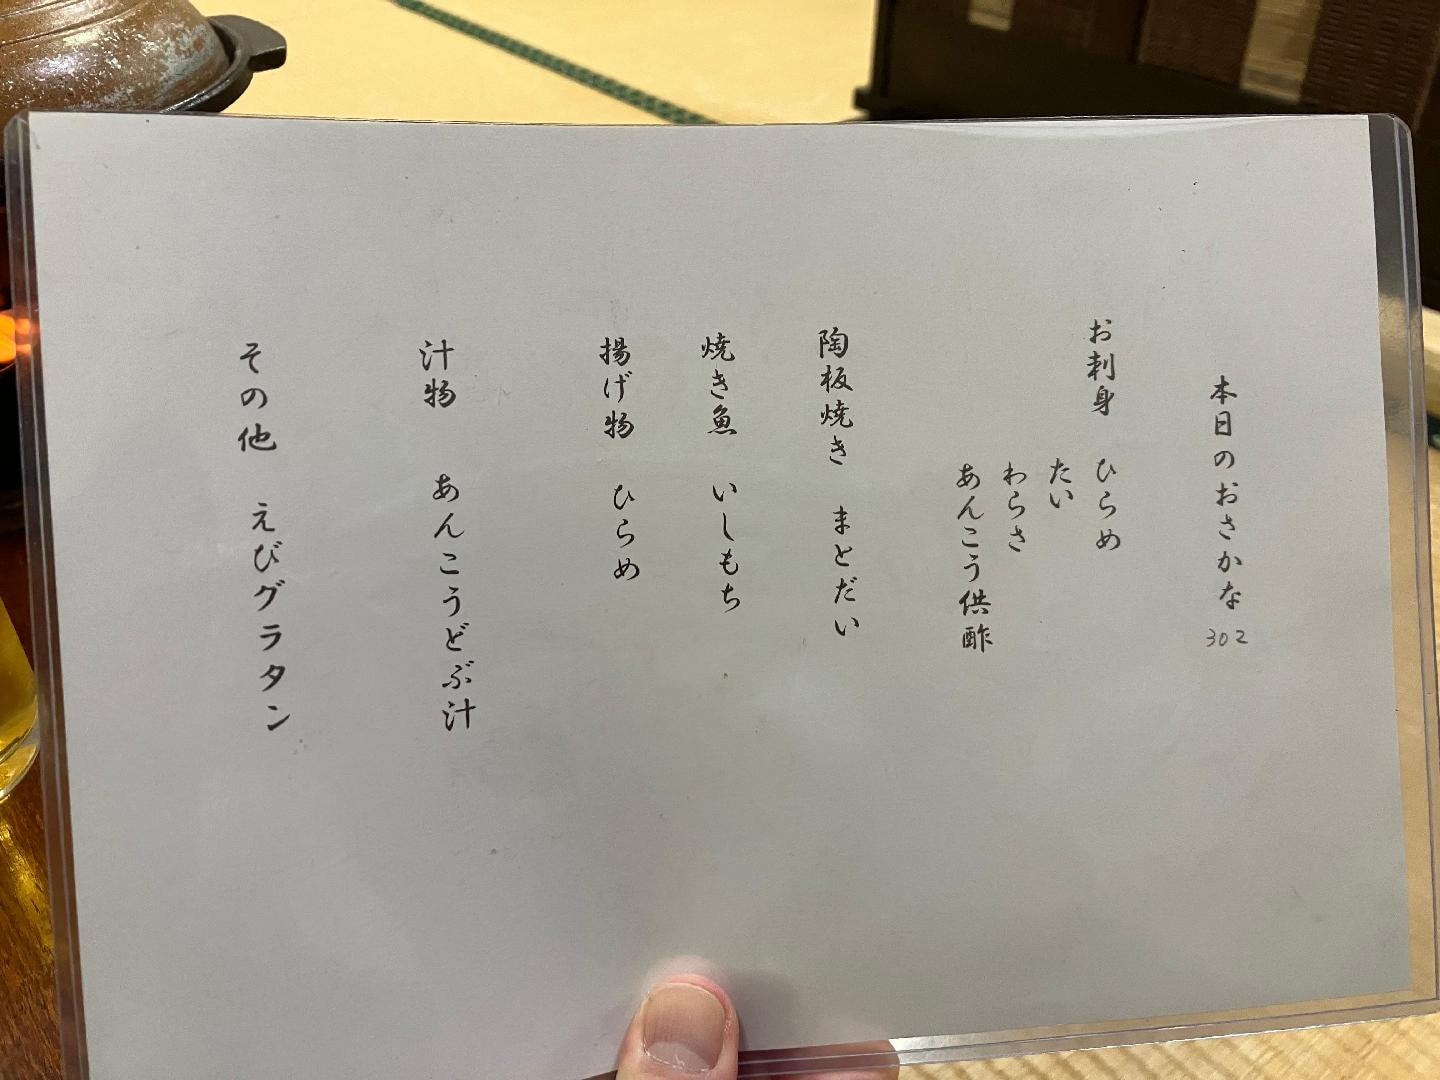 本日のおさかな
302
お刺身 ひらめ
たい
わらさ
あんこう供酢
陶板焼き まとだい
焼き魚 いしもち
揚げ物 ひらめ
汁物 あんこうどぶ汁
その他 えびグラタン